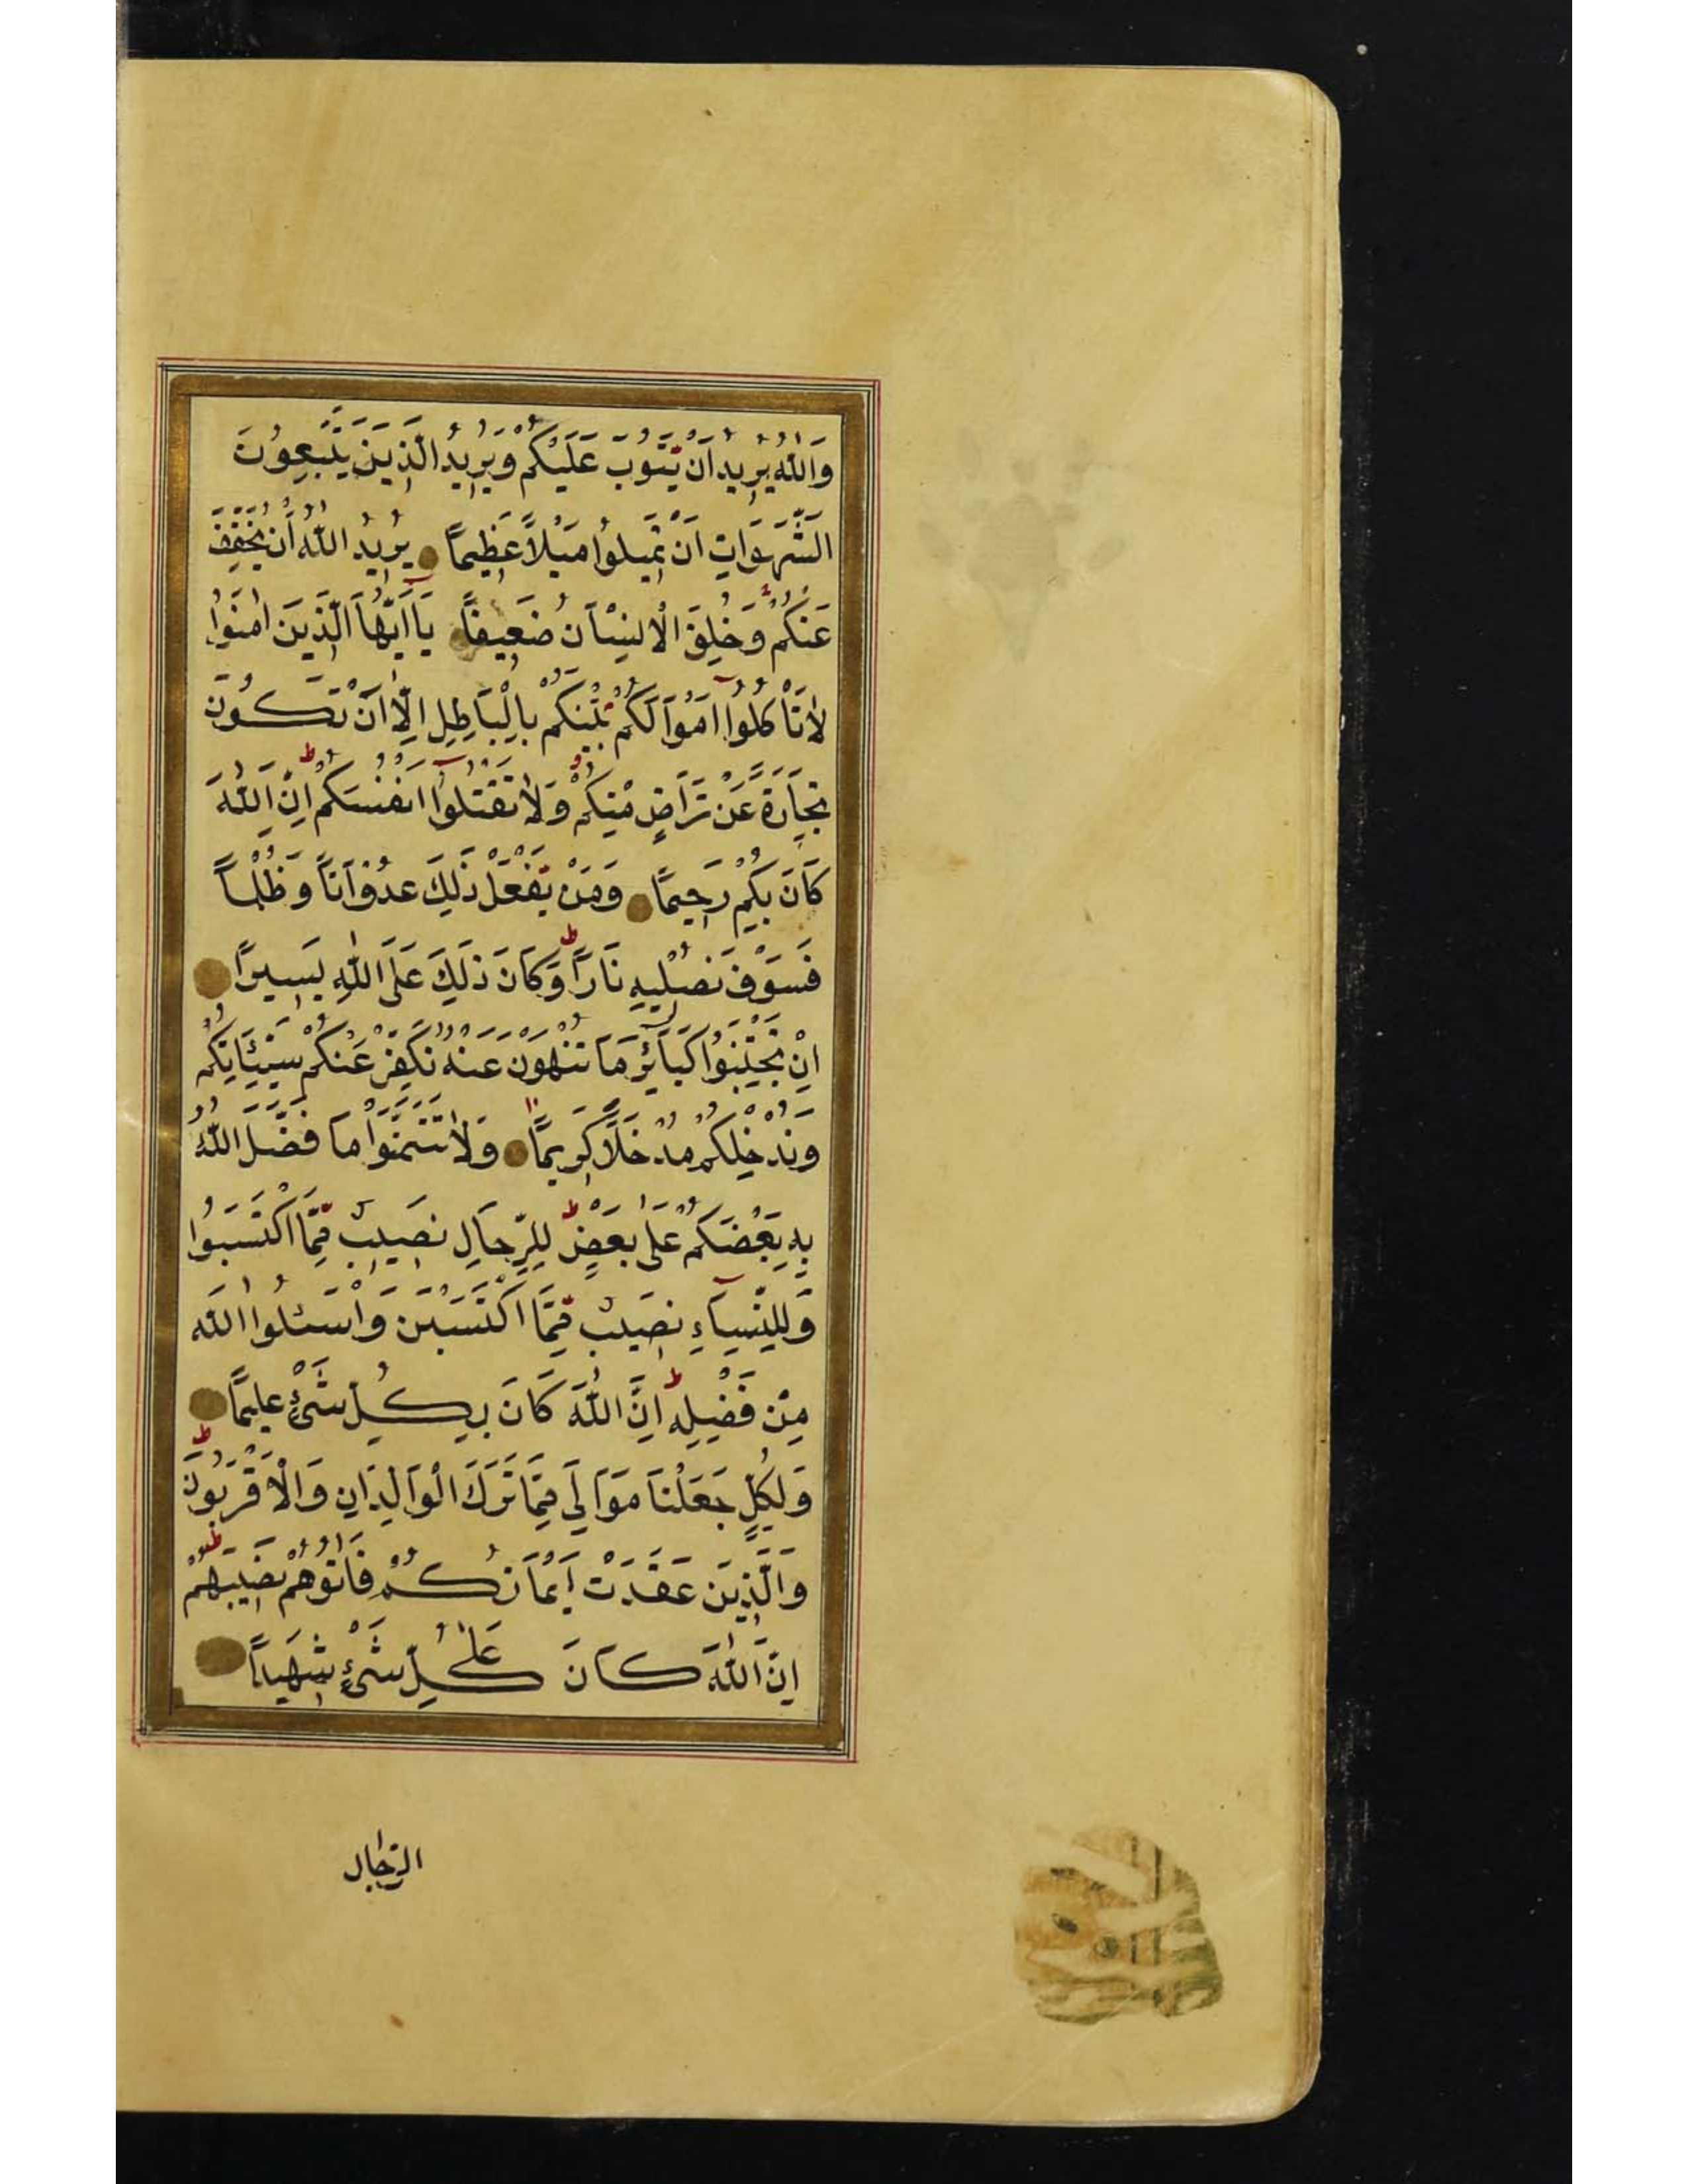 وَاللّٰهُ يُرِيدُ اَنْ يَتُوبَ عَلَيْكُمْ وَيُرِيدُ الَّذِينَ يَتَّبِعُونَ
الشَّهَوَاتِ اَنْ تَمِيلُوا مَيْلاً عَظِيمًا يُرِيدُ اللّٰهُ اَنْ يُخَفِّفَ
عَنْكُمْ وَخُلِقَ الْاِنْسَانُ ضَعِيفًا يَا اَيُّهَا الَّذِينَ اٰمَنُوا
لَا تَأْكُلُوا اَمْوَالَكُمْ بَيْنَكُمْ بِالْبَاطِلِ اِلَّا اَنْ تَكُونَ
تِجَارَةً عَنْ تَرَاضٍ مِنْكُمْ وَلَا تَقْتُلُوا اَنْفُسَكُمْ اِنَّ اللّٰهَ
كَانَ بِكُمْ رَحِيمًا وَمَنْ يَفْعَلْ ذٰلِكَ عُدْوَانًا وَظُلْمًا
فَسَوْفَ نُصْلِيهِ نَارًا وَكَانَ ذٰلِكَ عَلَى اللّٰهِ يَسِيرًا
اِنْ تَجْتَنِبُوا كَبَائِرَ مَا تُنْهَوْنَ عَنْهُ نُكَفِّرْ عَنْكُمْ سَيِّئَاتِكُمْ
وَنُدْخِلْكُمْ مُدْخَلًا كَرِيمًا وَلَا تَتَمَنَّوْا مَا فَضَّلَ اللّٰهُ
بِهِ بَعْضَكُمْ عَلٰى بَعْضٍ لِلرِّجَالِ نَصِيبٌ مِمَّا اكْتَسَبُوا
وَلِلنِّسَاءِ نَصِيبٌ مِمَّا اكْتَسَبْنَ وَاسْئَلُوا اللّٰهَ
مِنْ فَضْلِهِ اِنَّ اللّٰهَ كَانَ بِكُلِّ شَيْءٍ عَلِيمًا
وَلِكُلٍّ جَعَلْنَا مَوَالِيَ مِمَّا تَرَكَ الْوَالِدَانِ وَالْاَقْرَبُونَ
وَالَّذِينَ عَقَدَتْ اَيْمَانُكُمْ فَاٰتُوهُمْ نَصِيبَهُمْ
اِنَّ اللّٰهَ كَانَ عَلٰى كُلِّ شَيْءٍ شَهِيدًا
الرِّجَالُ